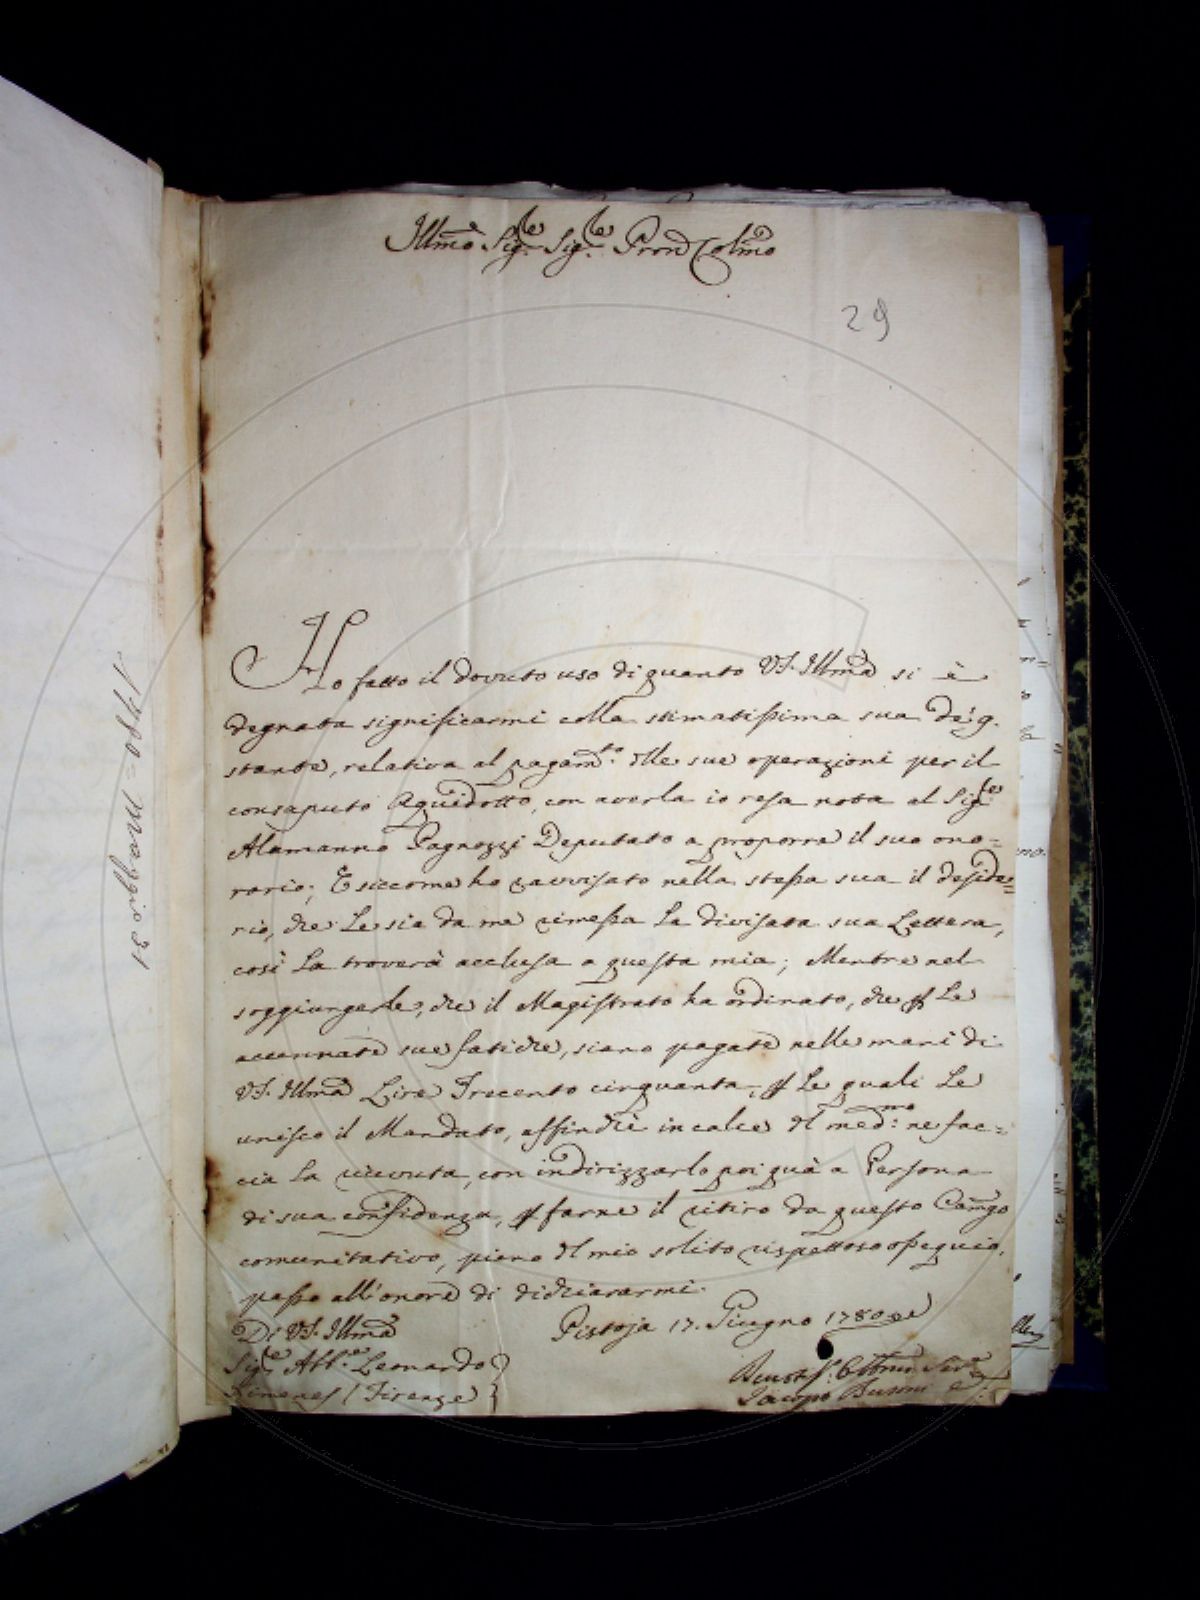 Illmo Sig.re Sig.re Pron Colmo
29
Ho fatto il dovuto uso di quanto VS. Illma si è
degnata significarmi colla stimatissima sua de 9.
stante, relativa al pagam.to delle sue operazioni per il
consaputo Aquidotto, con averla io resa nota al Sig.re
Alamanno Pagnozzi Deputato a proporre il suo ono=
rario; E siccome ho ravvisato nella stessa sua il deside=
rio, che Le sia da me rimessa la divisata sua Lettera,
così La troverà acclusa a questa mia; Mentre nel
soggiungerle, che il Magistrato ha ordinato, che p Le
accennate sue fatiche, siano pagate nelle mani di
VS. Illma Lire Trecento cinquanta, p Le quali Le
unisco il Mandato, affinchè in calce del med.mo ne fac=
cia La ricevuta, con indirizzarlo poi quà a Persona
di sua confidenza, p farne il ritiro da questo Camgo
comunitativo, pieno del mio solito rispettoso ossequio,
passo all'onore di dichiararmi
Di VS. Illma
Pistoja 17. Giugno 1780
Sig.re Abb.e Leonardo
Ximenes / Firenze
Jacopo
1780 = Maggio 31